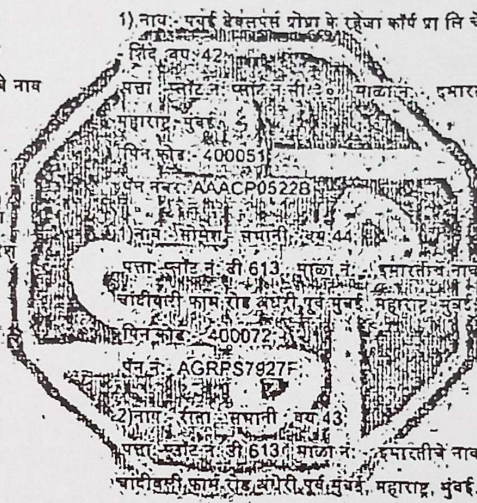 1) नाव:- पवई डेव्हलपर्स प्रोप्रा के रहेजा कॉर्प प्रा लि चे
शिंदे वय 42
चे नाव
पत्ता प्लॉट नं माळा नं: इमारत
महाराष्ट्र मुंबई
पिन कोड:- 400051
पॅन नंबर: AAACP0522B
1) नाव: सोमेश सभानी वय 44
पत्ता प्लॉट नं: डी 613 माळा नं: इमारतीचे नाव
चांदीवली फार्म रोड अंधेरी पूर्व मुंबई महाराष्ट्र मुंबई
पिन कोड:- 400072
पॅन नं: AGRPS7927F
2) नाव:- रीता सभानी वय 43
पत्ता प्लॉट नं: डी 613 माळा नं: इमारतीचे नाव
चांदीवली फार्म रोड अंधेरी पूर्व मुंबई, महाराष्ट्र, मुंबई